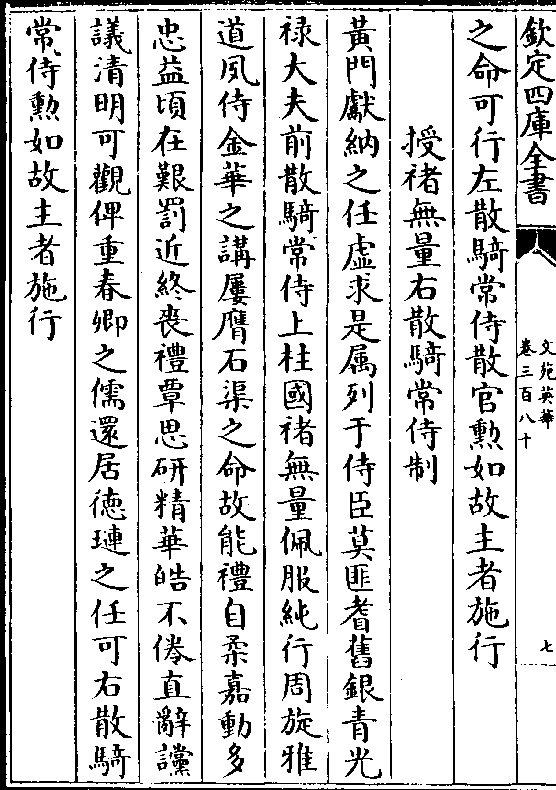 欽定四庫全書
文苑英華
卷三百八十
七
之命可行左散騎常侍散官勲如故主者施行
授禇無量右散騎常侍制
黄門獻納之任虚求是属列于侍臣莫匪耆舊銀青光
禄大夫前散騎常侍上柱國禇無量佩服純行周旋雅
道夙侍金華之講屢膺石渠之命故能禮自柔嘉動多
忠益頃在艱罰近終丧禮覃思研精華皓不倦直辭讜
議清明可觀俾重春卿之儒還居德璉之任可右散騎
常侍勲如故主者施行